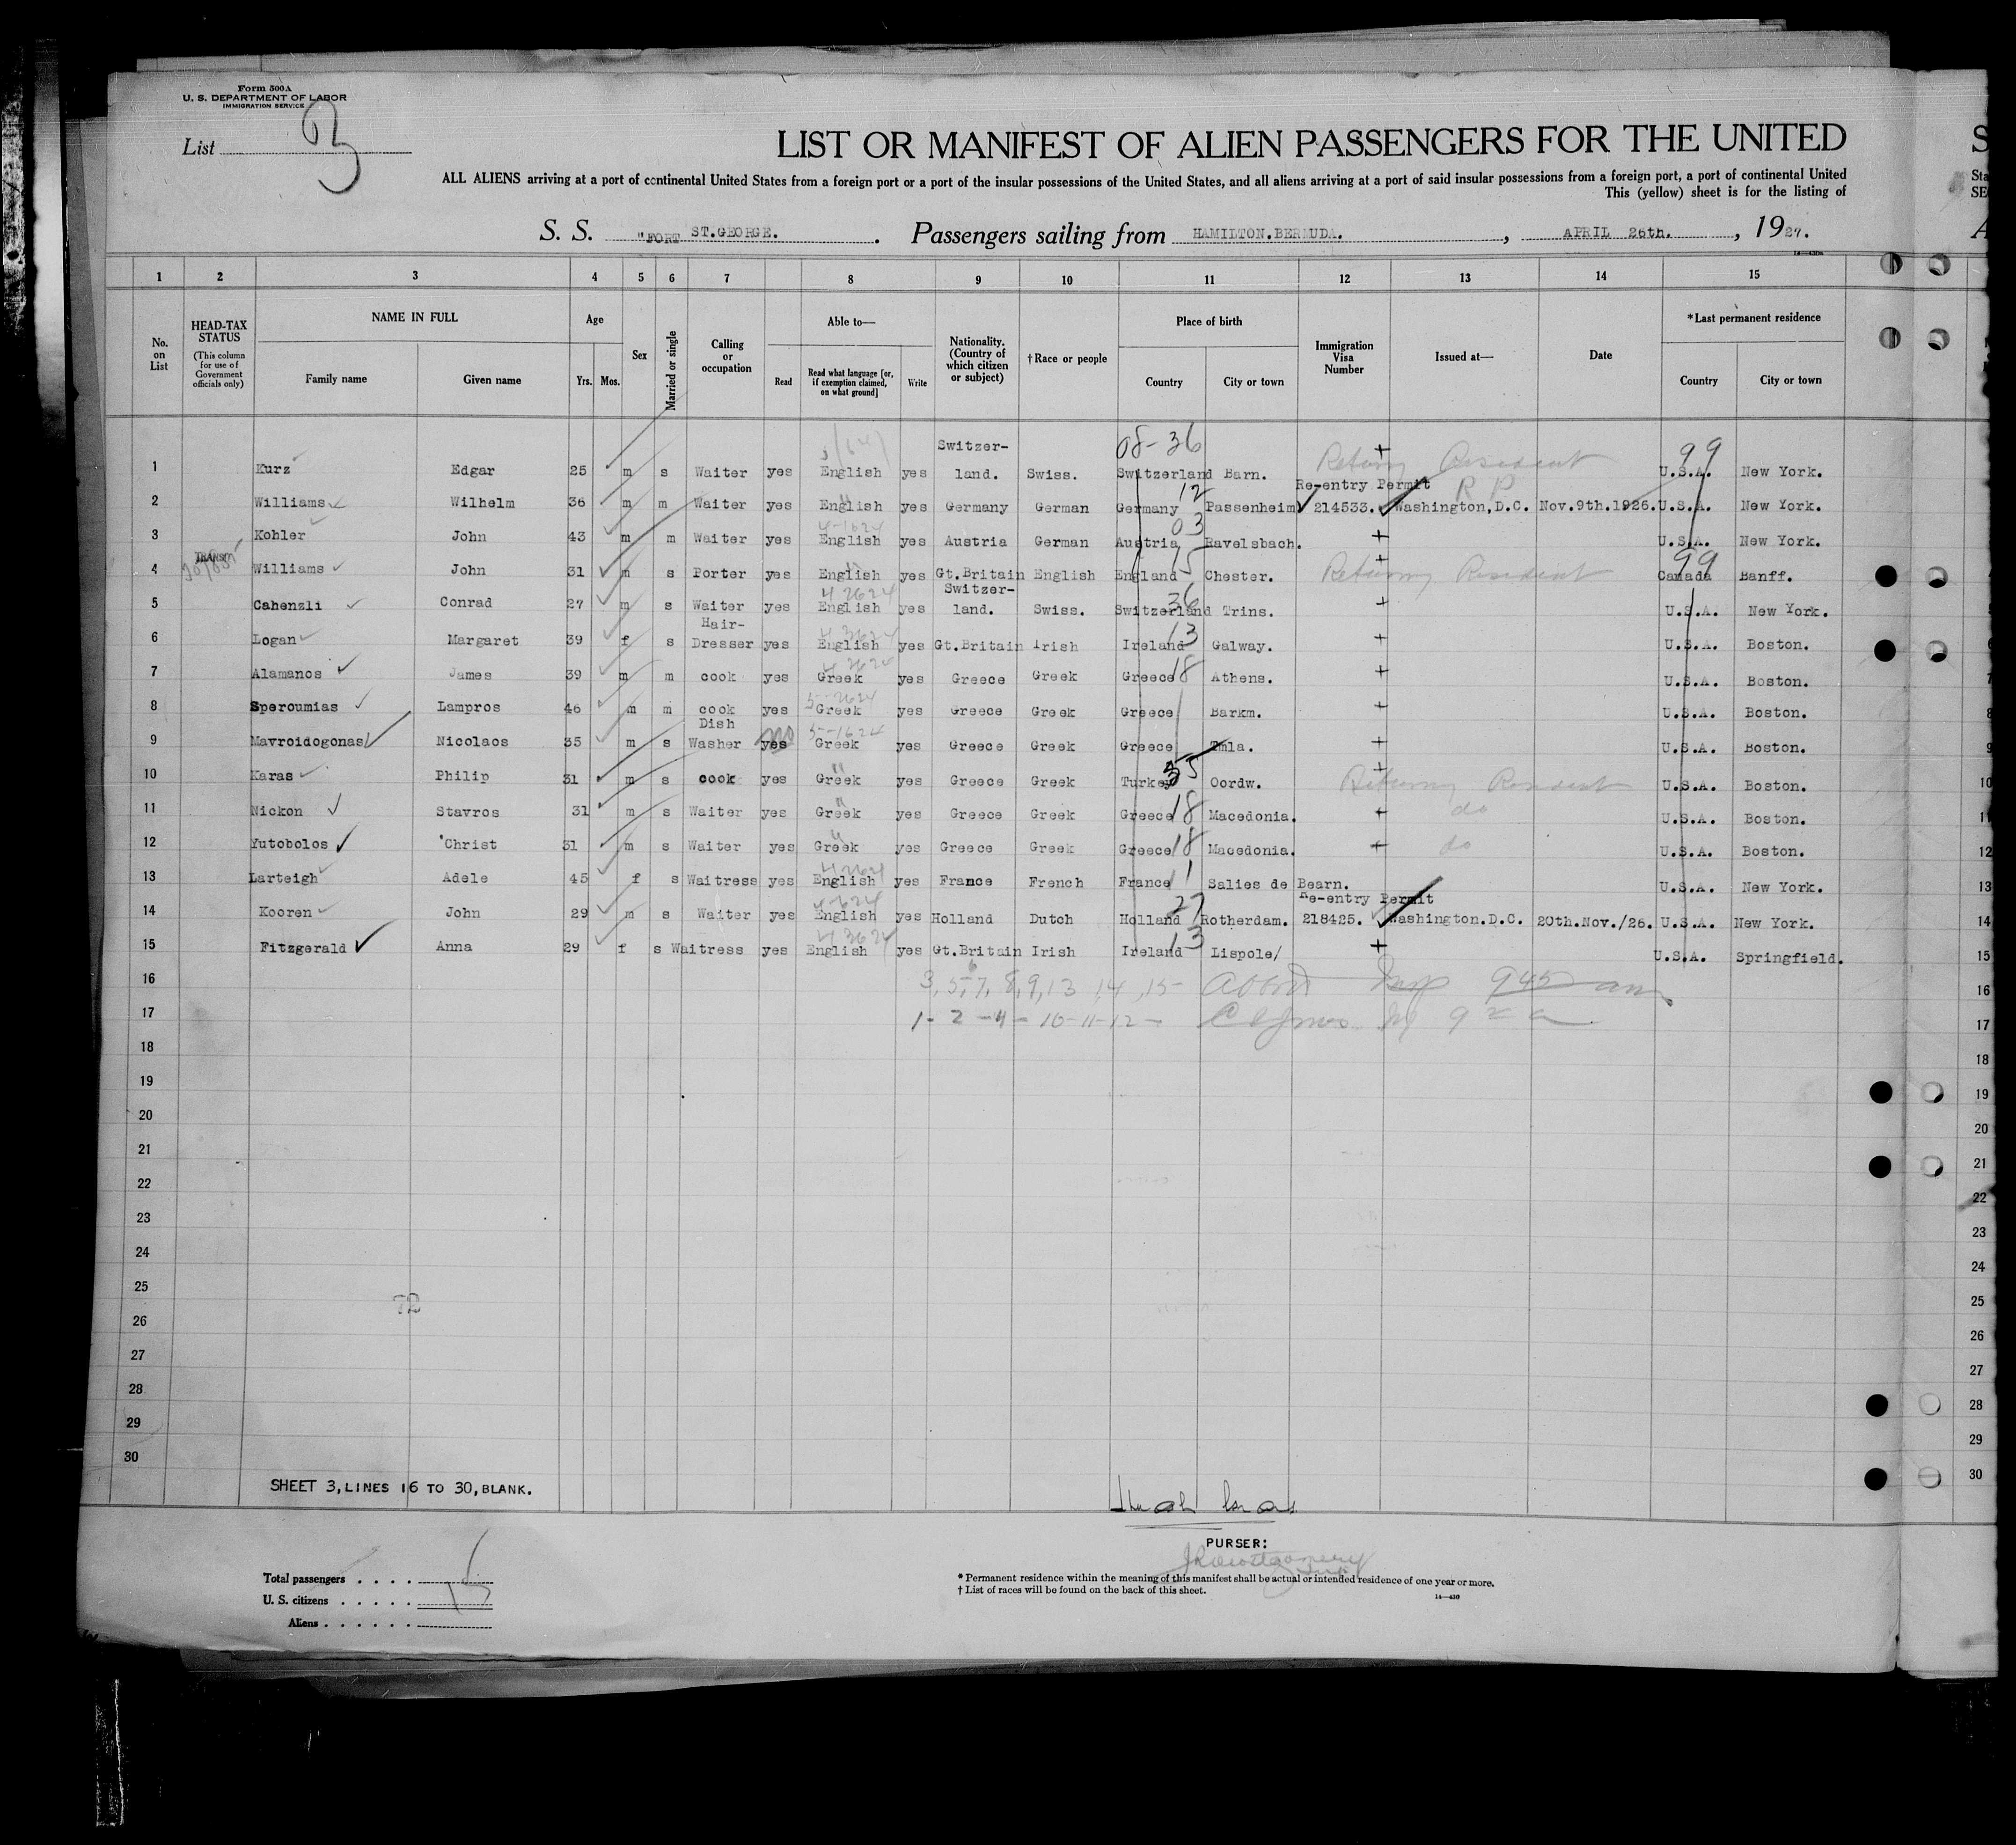 Form 500A
U. S. DEPARTMENT OF LABOR
IMMIGRATION SERVICE
List 3
LIST OR MANIFEST OF ALIEN PASSENGERS FOR THE UNITED
S
ALL ALIENS arriving at a port of continental United States from a foreign port or a port of the insular possessions of the United States, and all aliens arriving at a port of said insular possessions from a foreign port, a port of continental United
Sta
This (yellow) sheet is for the listing of
SE
S. S. "FORT ST.GEORGE. Passengers sailing from HAMILTON.BERMUDA. , APRIL 26th. , 1927.
A
1 2 3 4 5 6 7 8 9 10 11 12 13 14 15
No. on List
HEAD-TAX STATUS (This column for use of Government officials only)
NAME IN FULL
Family name Given name
Age
Yrs. Mos.
Sex
Married or single
Calling or occupation
Able to—
Read Read what language [or, if exemption claimed, on what ground] Write
Nationality. (Country of which citizen or subject)
† Race or people
Place of birth
Country City or town
Immigration Visa Number
Issued at—
Date
*Last permanent residence
Country City or town
08-36 99
1 Kurz Edgar 25 m s Waiter yes English yes Switzer- land. Swiss. Switzerland Barn. Returng Resident U.S.A. New York.
2 Williams Wilhelm 36 m m Waiter yes English yes Germany German Germany 12 Passenheim Re-entry Permit 214533. Washington,D.C. R P Nov.9th.1926. U.S.A. New York.
3 Kohler John 43 m m Waiter yes English yes Austria German Austria 03 Ravelsbach. U.S.A. New York.
4 TRANSIT Williams John 31 m s Porter yes English yes Gt.Britain English England 15 Chester. Returng Resident Canada 99 Banff.
5 Cahenzli Conrad 27 m s Waiter yes English yes Switzer- land. Swiss. Switzerland 36 Trins. U.S.A. New York.
6 Logan Margaret 39 f s Hair- Dresser yes English yes Gt.Britain Irish Ireland 13 Galway. U.S.A. Boston.
7 Alamanos James 39 m m cook yes Greek yes Greece Greek Greece 18 Athens. U.S.A. Boston.
8 Speroumias Lampros 46 m m cook yes Greek yes Greece Greek Greece Barkm. U.S.A. Boston.
9 Mavroidogonas Nicolaos 35 m s Dish Washer yes no Greek yes Greece Greek Greece Tmla. U.S.A. Boston.
10 Karas Philip 31 m s cook yes Greek yes Greece Greek Turkey 35 Oordw. Returng Resident U.S.A. Boston.
11 Nickon Stavros 31 m s Waiter yes Greek yes Greece Greek Greece 18 Macedonia. do U.S.A. Boston.
12 Yutobolos Christ 31 m s Waiter yes Greek yes Greece Greek Greece 18 Macedonia. do U.S.A. Boston.
13 Larteigh Adele 45 f s Waitress yes English yes France French France 11 Salies de Bearn. U.S.A. New York.
14 Kooren John 29 m s Waiter yes English yes Holland Dutch Holland 27 Rotherdam. Re-entry Permit 218425. Washington.D.C. 20th.Nov./26. U.S.A. New York.
15 Fitzgerald Anna 29 f s Waitress yes English yes Gt.Britain Irish Ireland 13 Lispole/ U.S.A. Springfield.
16 3, 5, 6 7, 8, 9, 13 14, 15- Insp 945 am
17 1- 2 -4- 10-11-12-
18
19
20
21
22
23
24
25
26
27
28
29
30
72
SHEET 3, LINES 16 TO 30, BLANK.
PURSER:
Total passengers . . . . 15
U. S. citizens . . . . .
Aliens . . . . . .
* Permanent residence within the meaning of this manifest shall be actual or intended residence of one year or more.
† List of races will be found on the back of this sheet.
14—430